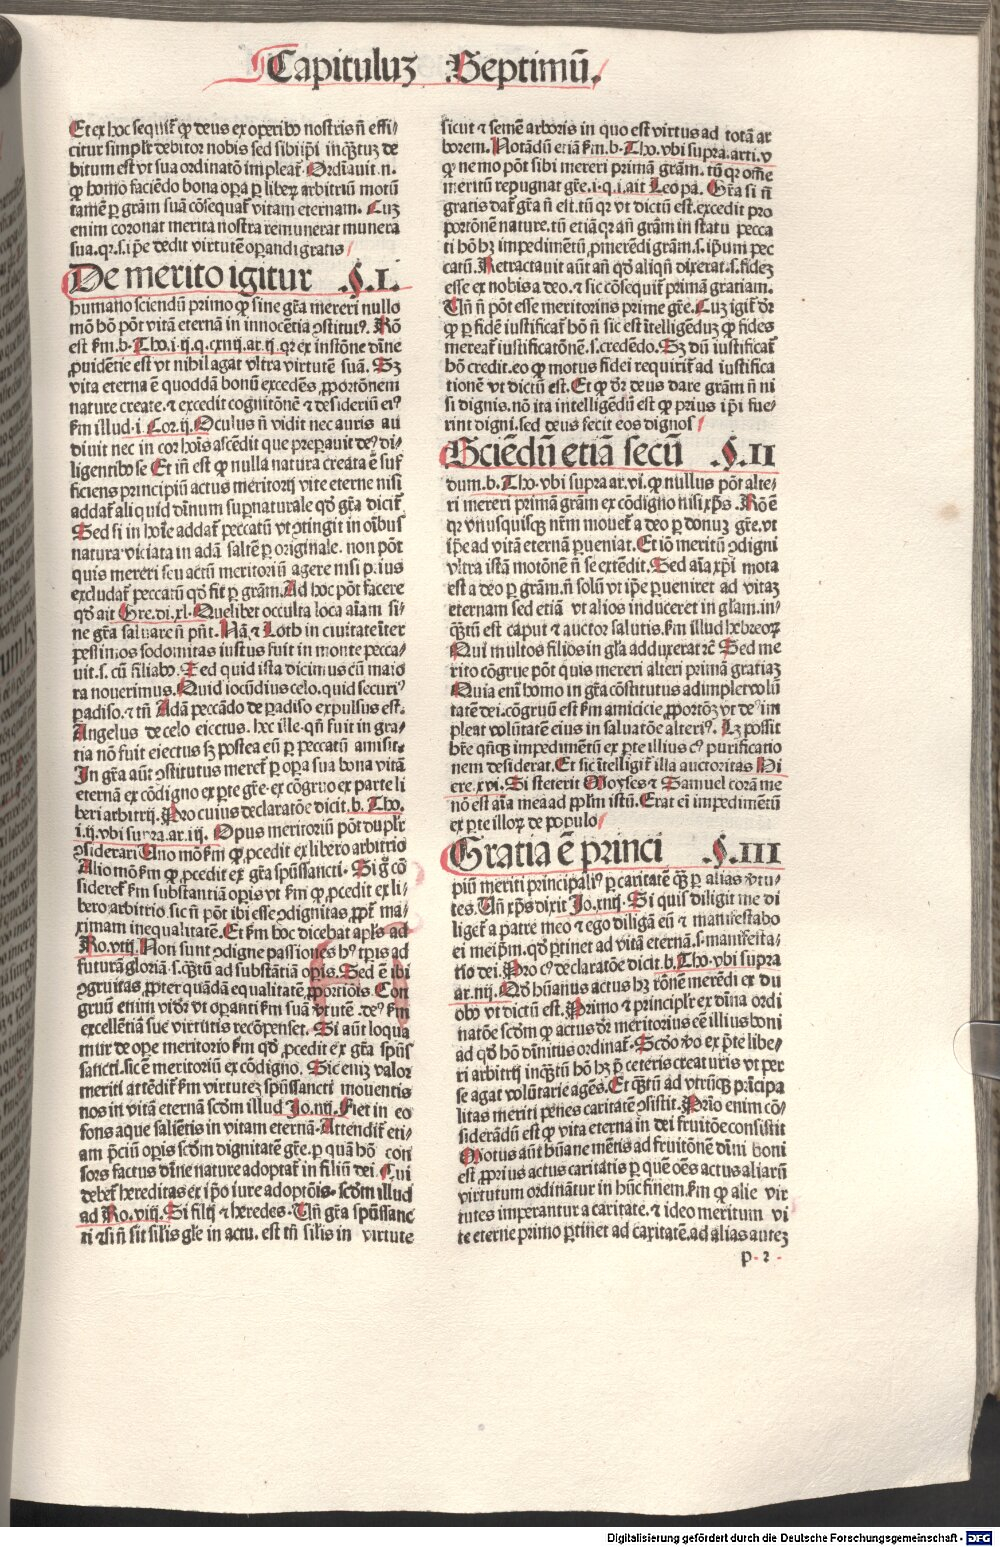 Capituluꝫ Septimū.
Et ex hoc sequit᷑ ꝙ deus ex operibꝰ nostris nō effi/
citur simplr̄ debitor nobis sed sibiip̄i inqꝫtuꝫ de
bitum est vt sua ordinatō impleat᷑. Ordīauit .n.
ꝙ homo faciēdo bona oꝑa ꝑ liberꝫ arbitriū motū
tamē ꝑ grām suā cōsequat᷑ vitam eternam. Cuꝫ
enim coronat merita nostra remunerat munera
sua.qꝛ.s.ip̄e dedit virtutē oꝑandi gratis/
De merito igitur .§.I.
humano sciendū primo ꝙ sine grā mereri nullo
mō hō pōt vitā eternā in innocētia ꝯstitutꝰ. Rō
est ẜm.b.Tho.i.ij.q.cxiiij.ar.ij.qꝛ ex instōne diīne
ꝓuidētie est vt nihil agat vltra virtutē suā. Sꝫ
vita eterna ē quoddā bonū excedēs ꝓportōnem
nature create.⁊ excedit cognitōnē ⁊ desideriū eiꝰ
ẜm illud.i.Cor.ij. Oculus nō vidit nec auris au
diuit nec in cor hoīs ascēdit que preꝑauit deꝰ di/
ligentibꝰ se Et īn est ꝙ nulla natura creata ē suf
ficiens principiū actus meritorij vite eterne nisi
addat᷑ aliquid diīnum suꝑnaturale qd̄ grā dicit᷑
Sed si in hoīe addat᷑ peccatū vt ꝯtingit in oībus
natura viciata in adā saltē ꝑ originale. non pōt
quis mereri seu actū meritoriū agere nisi prius
excludat᷑ peccatū qd̄ fit ꝑ grām. Ad hoc pōt facere
qd̄ ait Gre.di.xl. Quelibet occulta loca aīam si/
ne grā saluare nō pn̄t. Nā ⁊ Loth in ciuitate īter
pessimos sodomitas iustus fuit in monte pecca/
uit.s.cū filiabꝰ. Sed quid ista dicimus cū maio
ra nouerimus. Quid iocūdius celo.quid securiꝰ
paradiso.⁊ tn̄ Adā peccādo de paradiso expulsus est.
Angelus de celo eiectus. hec ille.qn̄ fuit in gra/
tia nō fuit eiectus sꝫ postea cū ꝑ peccatū amisit.
In grā aūt ꝯstitutus meret᷑ ꝑ oꝑa sua bona vitā
eternā ex cōdigno ex ꝑte grē.ex cōgruo ex parte li
beri arbitrij. Pro cuius declaratōe dicit.b.Tho.
i.ij.vbi supra.ar.iij. Opus meritoriū pōt duplr̄
ꝯsiderari Uno mō ẜm ꝙ ꝓcedit ex libero arbitrio
Alio mō ẜm ꝙ ꝓcedit ex grā spūssancti. Si gͦ cō
sideret᷑ ẜm substantiā oꝑis vt ẜm ꝙ ꝓcedit ex li/
bero arbitrio.sic nō pōt ibi esse ꝯdignitas ꝓpt᷑ ma/
ximam inequalitatē. Et ẜm hoc dicebat apl̄s ad
Ro.viij. Non sunt ꝯdigne passiones hꝰ tp̄is ad
futurā gloriā.s.qꝫtū ad substātiā oꝑis. Sed ē ibi
ꝯgruitas ꝓpter quādā equalitatē ꝓportiōis. Con
gruū enim vidr̄ vt oꝑanti ẜm suā v̓tutē .deꝰ ẜm
excellētiā sue virtutis recōpenset. Si aūt loqua
mur de oꝑe meritorio ẜm qd̄ ꝓcedit ex grā spūs
sancti.sic ē meritoriū ex cōdigno. Sic eniꝫ valor
meriti attēdit᷑ ẜm virtutez spūssancti mouentis
nos in vitā eternā scdm illud Jo.iiij. Fiet in eo
fons aque saliētis in vitam eternā. Attendit᷑ eti/
am p̄ciū oꝑis scdm dignitatē grē.ꝑ quā hō con
sors factus diīne nature adoptat᷑ in filiū dei. Cui
debet᷑ hereditas ex ip̄o iure adoptōis. scdm illud
ad Ro.viij. Si filij ⁊ heredes. Un̄ grā spūssanc
ti ⁊si nō sit sīlis glē in actu. est tn̄ sīlis in virtute
sicut ⁊ semē arboris in quo est virtus ad totā ar
borem. Notādū etiā ẜm.b.Tho.vbi supra.arti.v
ꝙ nemo pōt sibi mereri primā grām. tū qꝛ om̄e
meritū repugnat grē.i.q.i.ait Leo pa. Grā si nō
gratis dat᷑ grā nō est. tū qꝛ vt dictū est.excedit pro
portōnē nature.tū etiā qꝛ an̄ grām in statu pecca
ti hō hꝫ impedimētū ꝓmerēdi grām.s.ip̄um pec
catū. Retractauit aūt an̄ qd̄ aliqn̄ dixerat.s.fideꝫ
esse ex nobis a deo.⁊ sic cōsequit᷑ primā gratiam.
Un̄ nō pōt esse meritorius prime grē. Cuꝫ igit᷑ dr̄
ꝙ ꝑ fidē iustificat᷑ hō nō sic est ītelligēduꝫ ꝙ fides
mereat᷑ iustificatōnē.s.credēdo. Sꝫ dū iustificat᷑
hō credit.eo ꝙ motus fidei requirit᷑ ad iustifica
tionē vt dictū est. Et ꝙ dr̄ deus dare grām nō ni
si dignis.nō ita intelligēdū est ꝙ prius ip̄i fue/
rint digni.sed deus fecit eos dignos/
Sciēdū etiā secū .§.II
dum.b.Tho.vbi supra ar.vi.ꝙ nullus pōt alte/
ri mereri primā grām ex cōdigno nisi xp̄s. Rō ē
qꝛ vnusquisqꝫ nr̄m mouet᷑ a deo ꝑ donuꝫ grē.vt
ip̄e ad vitā eternā ꝑueniat. Et iō meritū ꝯdigni
vltra istā motōnē nō se extēdit. Sed aīa xp̄i mota
est a deo ꝑ grām.nō solū vt ip̄e ꝑueniret ad vitaꝫ
eternam sed etiā vt alios induceret in glām.in/
qꝫtū est caput ⁊ auctor salutis.ẜm illud hebreoꝝ
Qui multos filios in glā adduxerat ⁊c̄ Sed me
rito cōgrue pōt quis mereri alteri primā gratiaꝫ
Quia eni homo in grā cōstitutus adimplet volū
tatē dei.cōgruū est ẜm amicicie ꝓportōꝫ vt deꝰ im
pleat volūtatē eius in saluatōe alteriꝰ. Lꝫ possit
hr̄e qn̄qꝫ impedimētū ex ꝑte illius cꝰ purificatio
nem desiderat. Et sic ītelligit᷑ illa auctoritas Hi
ere.xvi. Si steterit Moyses ⁊ Samuel corā me
nō est aīa mea ad pp̄lm istū. Erat ei impedimētū
ex ꝑte illoꝝ de populo/
Gratia ē princi .§.III
piū meriti principaliꝰ ꝑ caritatē qꝫ ꝑ alias v̓tu/
tes. Un̄ xp̄s dixit Jo.xiiij. Si quis diligit me di
liget᷑ a patre meo ⁊ ego diligā eū ⁊ manifestabo
ei meip̄m.qd̄ ꝑtinet ad vitā eternā.s.manifesta/
tio dei. Pro cꝰ declaratōe dicit.b.Tho.vbi supra
ar.iiij. Qd̄ hūanus actus hꝫ rōnē merēdi ex du
obꝰ vt dictū est. Primo ⁊ principlr̄ ex diīna ordi
natōe scdm ꝙ actus dr̄ meritorius eē illius boni
ad qd̄ hō diīnitus ordinat᷑. Scdo v̓o ex ꝑte libe/
ri arbitrij inqꝫtū hō hꝫ p̄ ceteris creaturis vt per
se agat volūtarie agēs. Et qꝫtū ad vtrūqꝫ prīcipa
litas meriti penes caritatē ꝯsistit. Prio enim cō/
siderādū est ꝙ vita eterna in dei fruitōe consistit
Motus aūt hūane mētis ad fruitōnē diīni boni
est ꝓprius actus caritatis ꝑ quē oēs actus aliarū
virtutum ordinātur in hūc finem.ẜm ꝙ alie vir
tutes imperantur a caritate.⁊ ideo meritum vi
te eterne primo ꝑtinet ad caritatē.ad alias auteꝫ
p 2
Digitalisierung gefördert durch die Deutsche Forschungsgemeinschaft - DFG